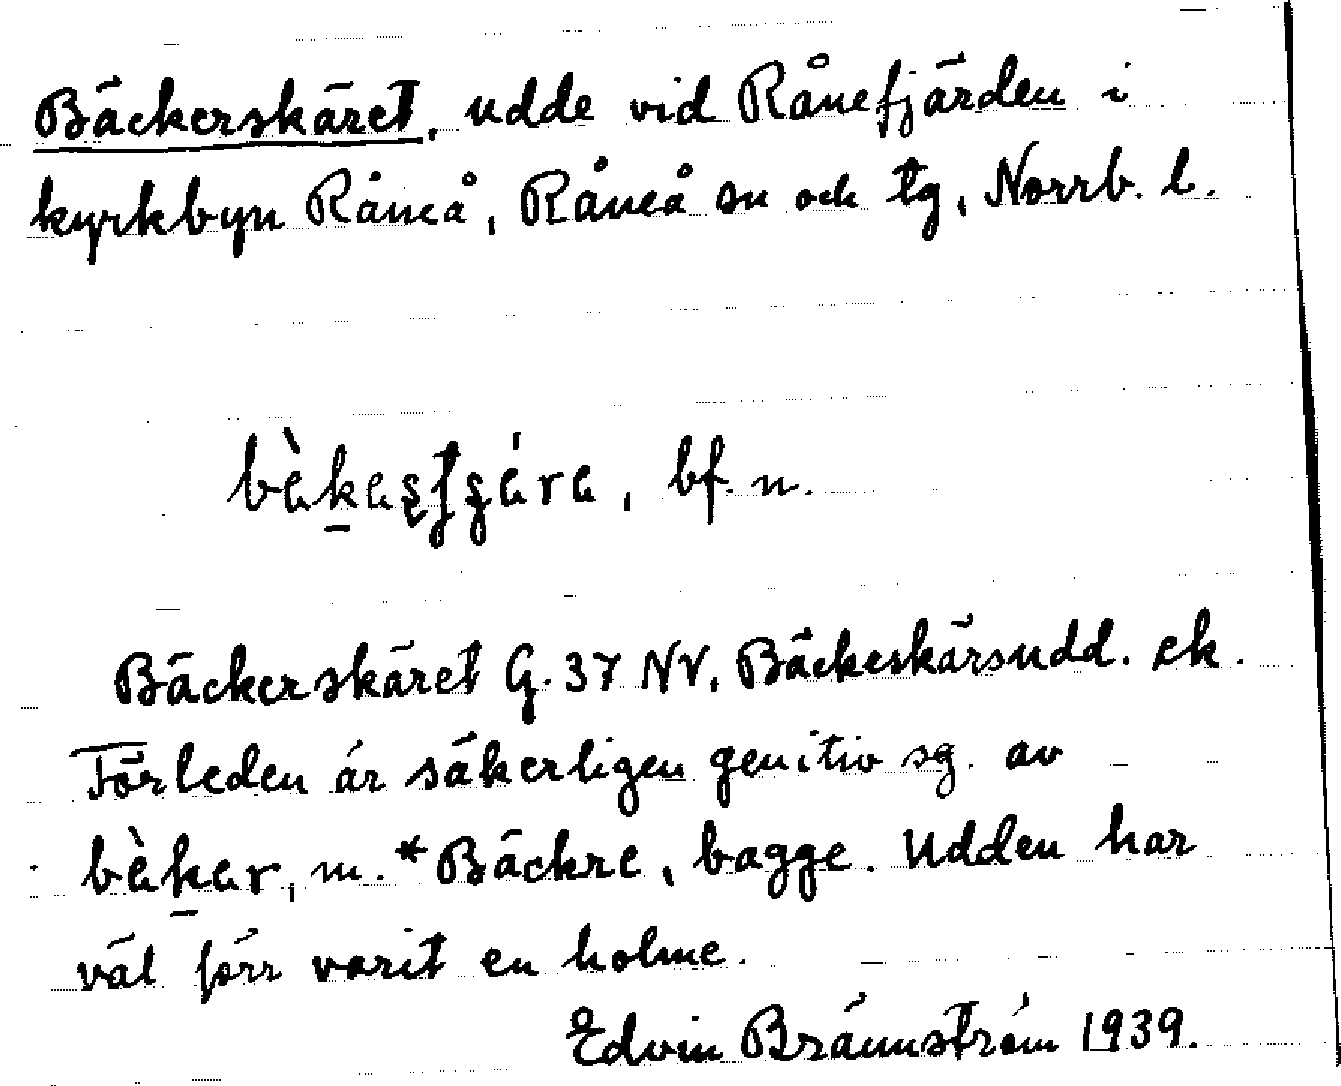 Bäckerskäret, udde vid Rånefjärden i
kyrkbyn Råneå, Råneå sn och tg, Norrb. l.
bf. n.
Bäckerskäret G. 37 NV. Bäckeskärsudd. ek.
Förleden är säkerligen genitiv sg. av
bèkar, m. *Bäckre, bagge. Udden har
väl förr varit en holme.
Edvin Brännström 1939.